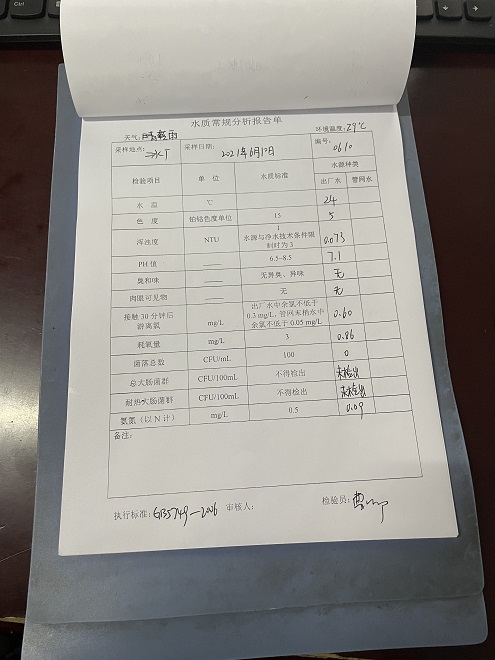 水质常规分析报告单
天气: 环境温度: 29℃
采样地点: 二水厂 采样日期: 2021年6月10日 编号: 0610
检验项目 单 位 水质标准 水源种类
出厂水 管网水
水 温 ℃ 24
色 度 铂钴色度单位 15 5
浑浊度 NTU 1
水源与净水技术条件限
制时为3 0.073
PH值 6.5~8.5 7.1
臭和味 —— 无异臭、异味 无
肉眼可见物 —— 无 无
接触30分钟后
游离氯 mg/L 出厂水中余氯不低于
0.3 mg/L, 管网末梢水中
余氯不低于0.05 mg/L 0.60
耗氧量 mg/L 3 0.86
菌落总数 CFU/mL 100 0
总大肠菌群 CFU/100mL 不得检出 未检出
耐热大肠菌群 CFU/100mL 不得检出 未检出
氨氮（以N计） mg/L 0.5 0.09
备注:
执行标准: GB5749—2006 审核人: 检验员: